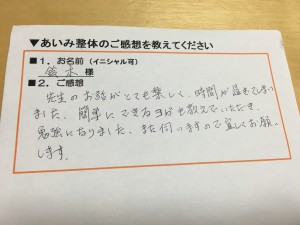 ▼あいみ整体のご感想を教えてください
■1．お名前（イニシャル可）
鈴木 様
■2．ご感想
先生のお話がとても楽しく、時間が
ました。簡単にできるヨガも教えていただき、
勉強になりました。また伺いますので宜しくお願い
します。